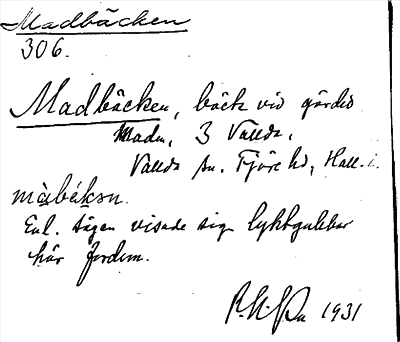 Madbäcken
306.
Madbäcken, bäck vid gärdet
Madn, 3 Vallda,
Vallda sn. Fjäre hd, Hall. l.
màbǽkən.
Enl. sägen visade sig lyktgubbar
här fordom.
1931